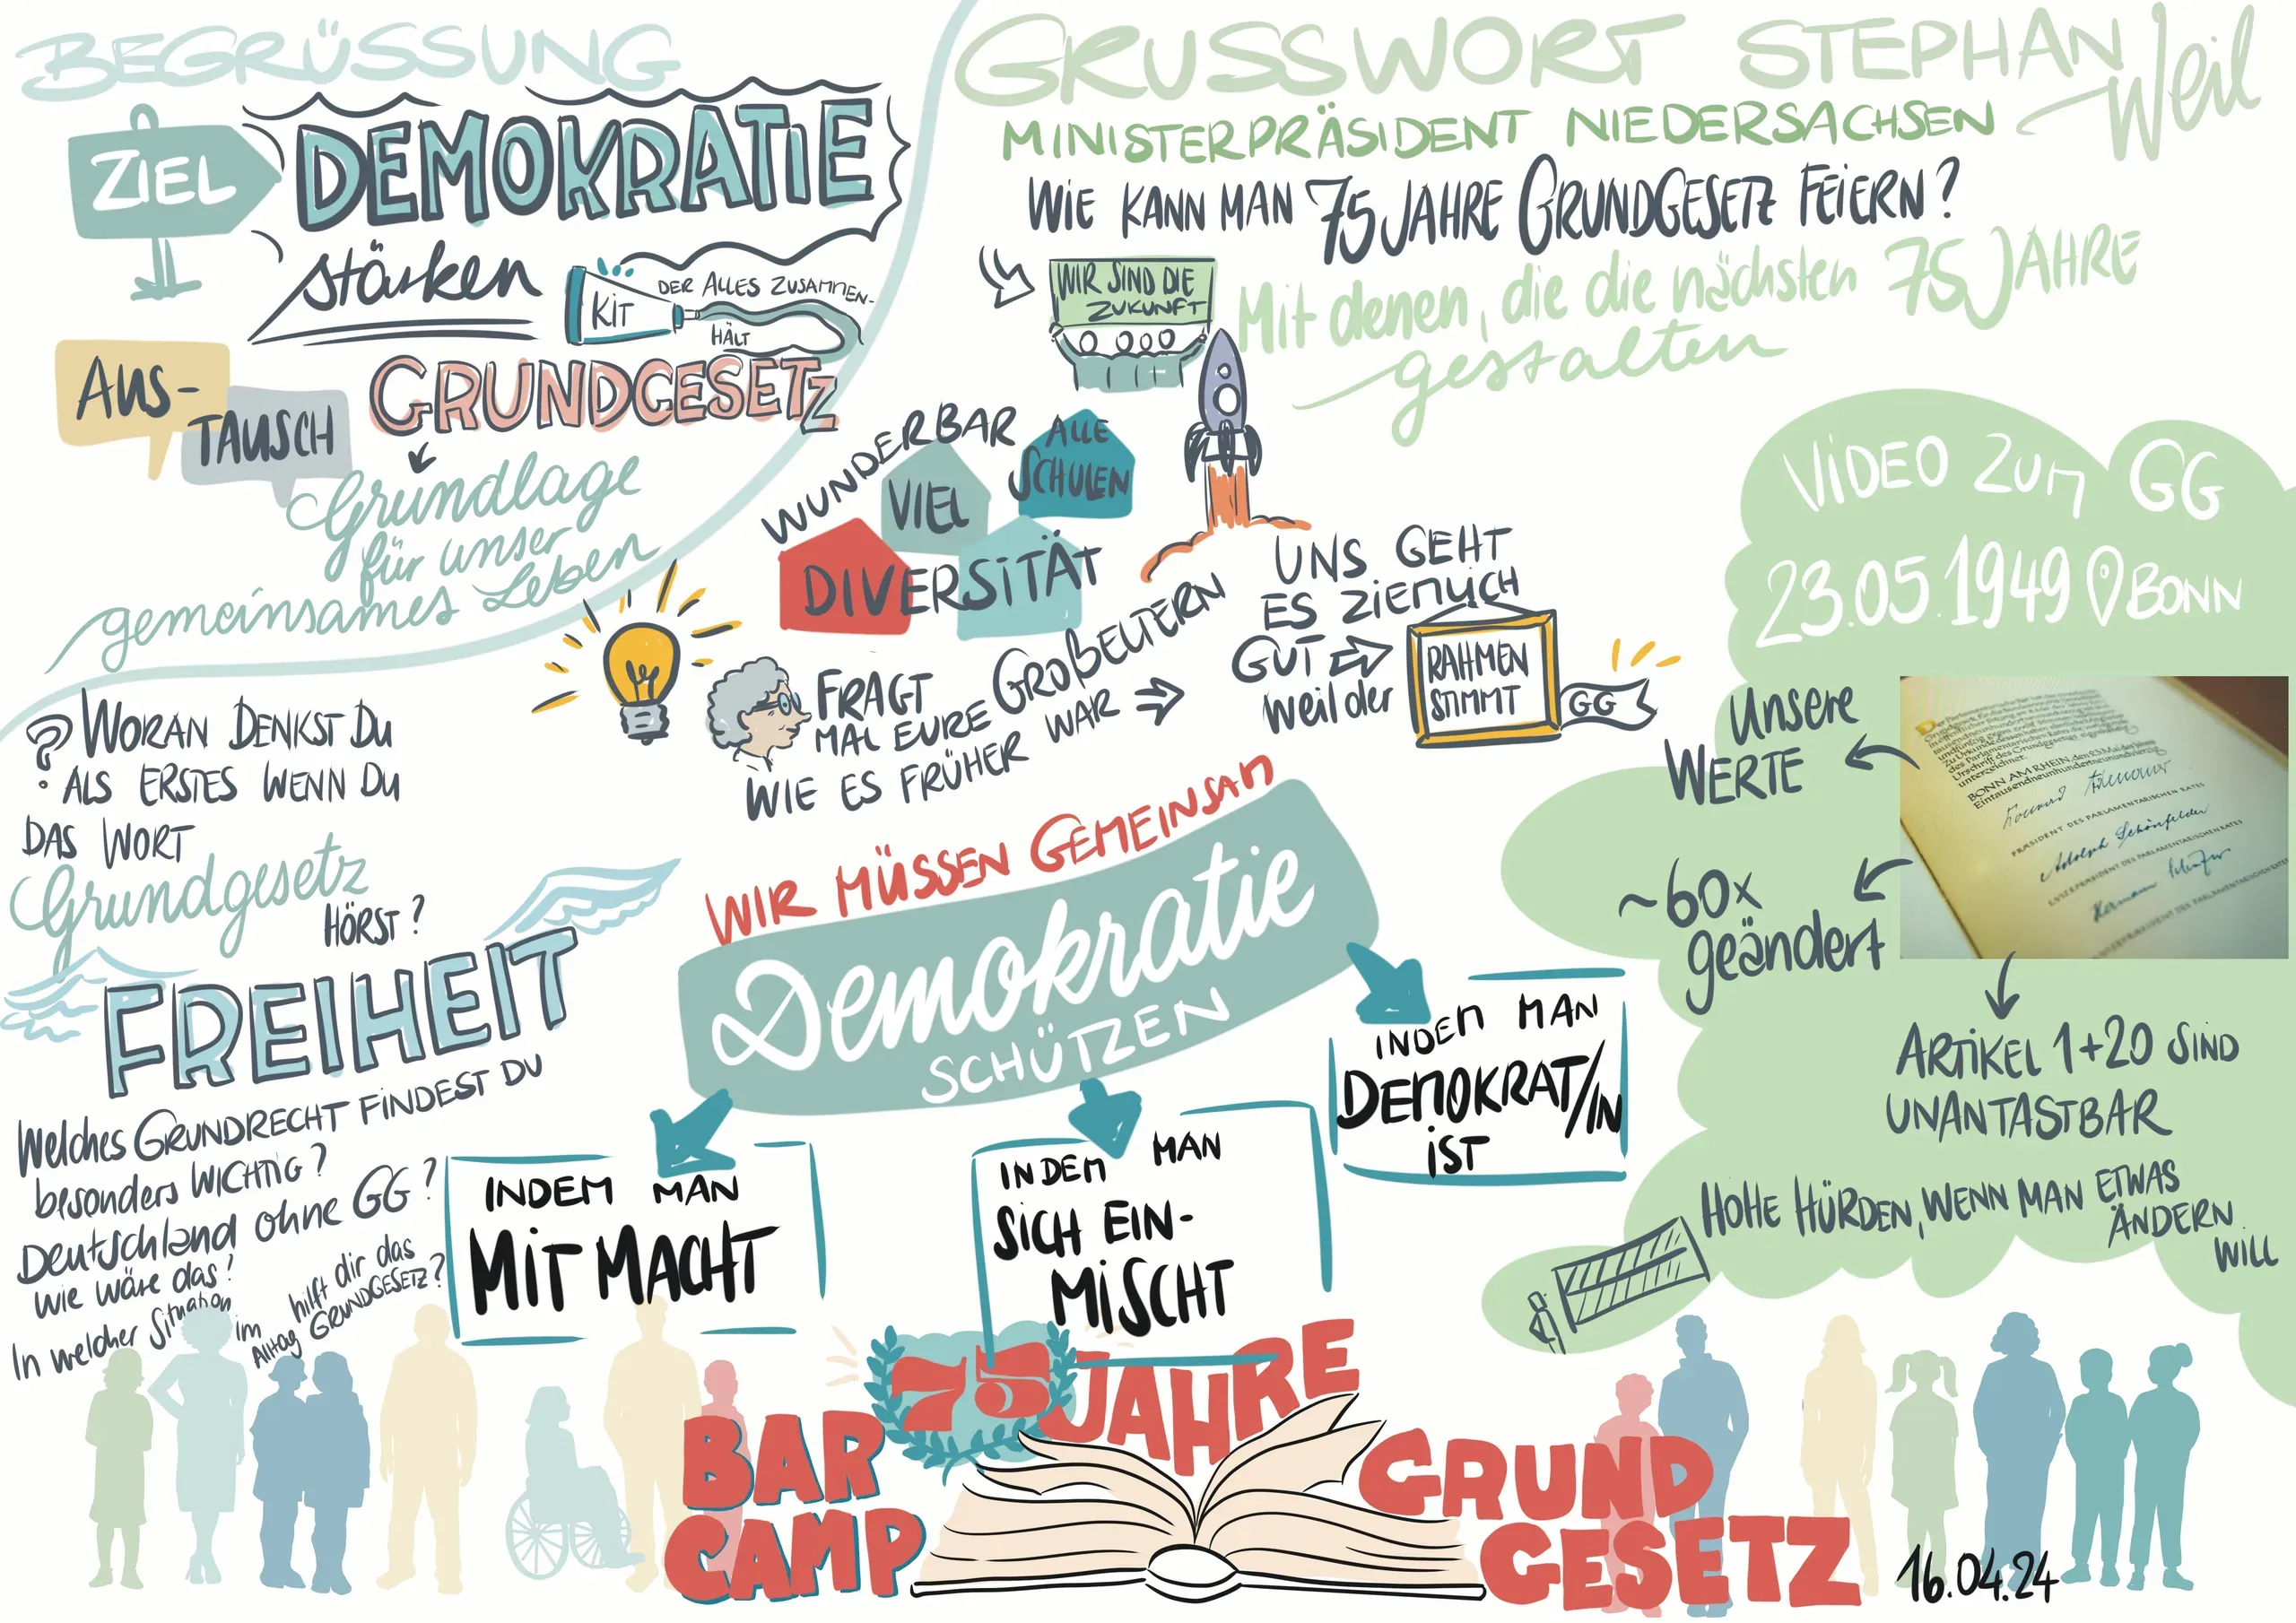 BEGRÜSSUNG
ZIEL
DEMOKRATIE
stärken
KIT
DER ALLES ZUSAMMEN-
HÄLT
AUS-
TAUSCH
GRUNDGESETZ
Grundlage
für unser
gemeinsames Leben
GRUSSWORT STEPHAN Weil
MINISTERPRÄSIDENT NIEDERSACHSEN
WIE KANN MAN 75 JAHRE GRUNDGESETZ FEIERN?
WIR SIND DIE
ZUKUNFT
Mit denen, die die nächsten 75 JAHRE
gestalten
WUNDERBAR
VIEL
DIVERSITÄT
ALLE
SCHULEN
FRAGT
MAL EURE GROẞELTERN
WIE ES FRÜHER WAR
UNS GEHT
ES ZIEMLICH
GUT
weil der
RAHMEN
STIMMT
GG
VIDEO ZUM GG
23.05.1949 BONN
Unsere
WERTE
Bonn am Rhein, den 23. Mai des Jahres
Eintausendneunhundertneunundvierzig
PRÄSIDENT DES PARLAMENTARISCHEN RATES
Adolph Schönfelder
~60x
geändert
ARTIKEL 1+20 SIND
UNANTASTBAR
HOHE HÜRDEN, WENN MAN ETWAS
ÄNDERN
WILL
? WORAN DENKST DU
ALS ERSTES WENN DU
DAS WORT
Grundgesetz
HÖRST?
FREIHEIT
Welches GRUNDRECHT FINDEST DU
besonders WICHTIG?
Deutschland ohne GG?
wie wäre das?
In welcher Situation
im
Alltag
hilft dir das
GRUNDGESETZ?
WIR MÜSSEN GEMEINSAM
Demokratie
SCHÜTZEN
INDEM MAN
MITMACHT
INDEM MAN
SICH EIN-
MISCHT
INDEM MAN
DEMOKRAT/IN
IST
BAR
CAMP
75 JAHRE
GRUND
GESETZ
16.04.24